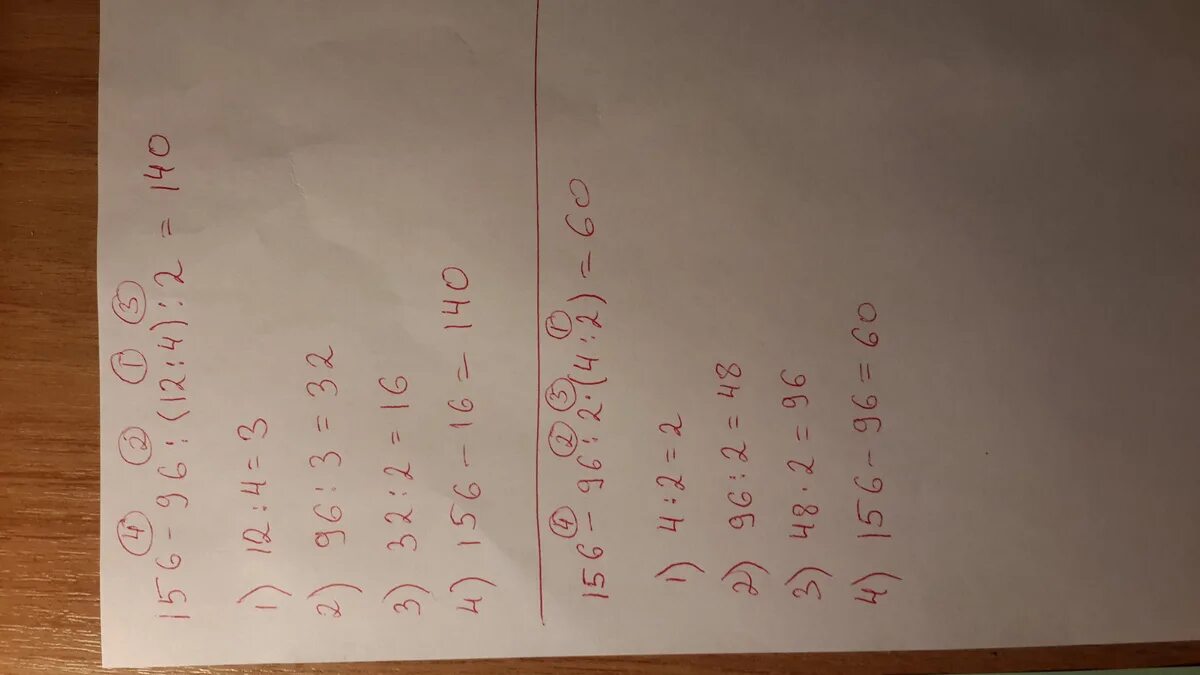 ④ ② ① ③
156 - 96 : (12 : 4) : 2 = 140
1) 12 : 4 = 3
2) 96 : 3 = 32
3) 32 : 2 = 16
4) 156 - 16 = 140
④ ② ③ ①
156 - 96 : 2 · (4 : 2) = 60
1) 4 : 2 = 2
2) 96 : 2 = 48
3) 48 · 2 = 96
4) 156 - 96 = 60